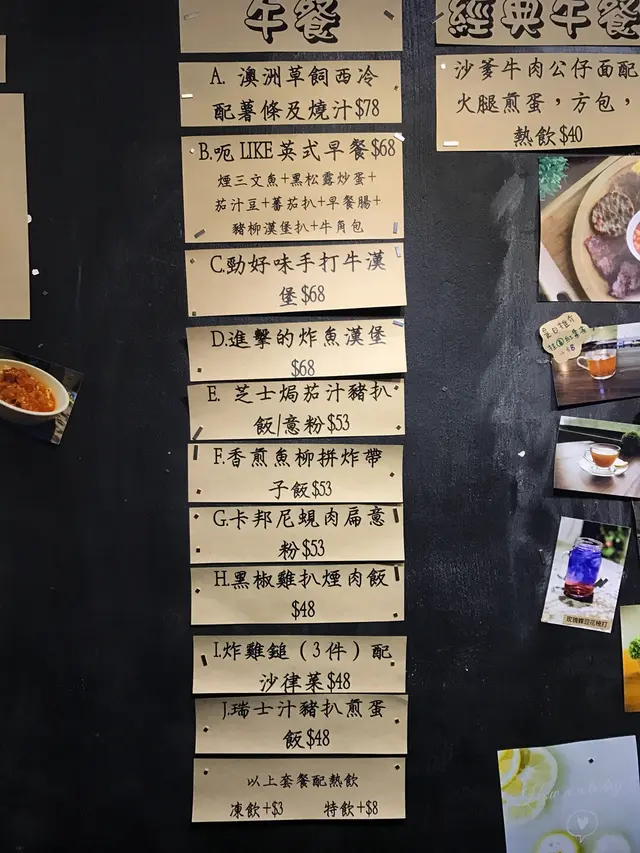 午餐
A. 澳洲草飼西冷
配薯條及燒汁$78
B.呃 LIKE 英式早餐$68
煙三文魚+黑松露炒蛋+
茄汁豆+蕃茄扒+早餐腸+
豬柳漢堡扒+牛角包
C.勁好味手打牛漢
堡$68
D.進擊的炸魚漢堡
$68
E. 芝士焗茄汁豬扒
飯/意粉$53
F.香煎魚柳拼炸帶
子飯$53
G.卡邦尼蜆肉扁意
粉$53
H.黑椒雞扒煙肉飯
$48
I.炸雞鎚（3件）配
沙律菜$48
J.瑞士汁豬扒煎蛋
飯$48
以上套餐配熱飲
凍飲+$3 特飲+$8
經典午餐
沙爹牛肉公仔面配
火腿煎蛋，方包，
熱飲$40
玫瑰蝶豆花梳打